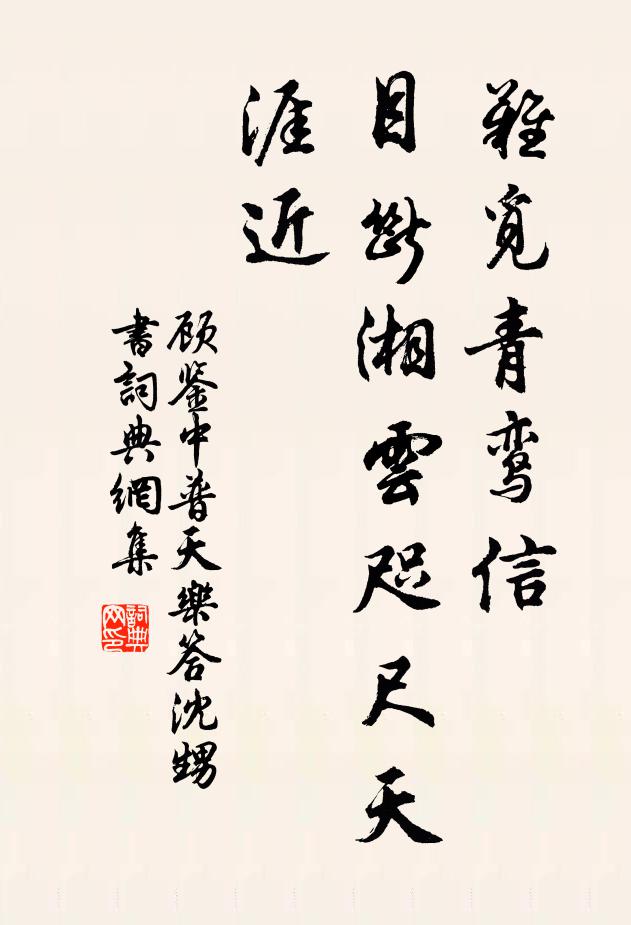 難覓青鸾信
目斷湘雲咫尺天
涯近
顾鉴中普天樂答沈甥
書詞典網集
詞典
网印